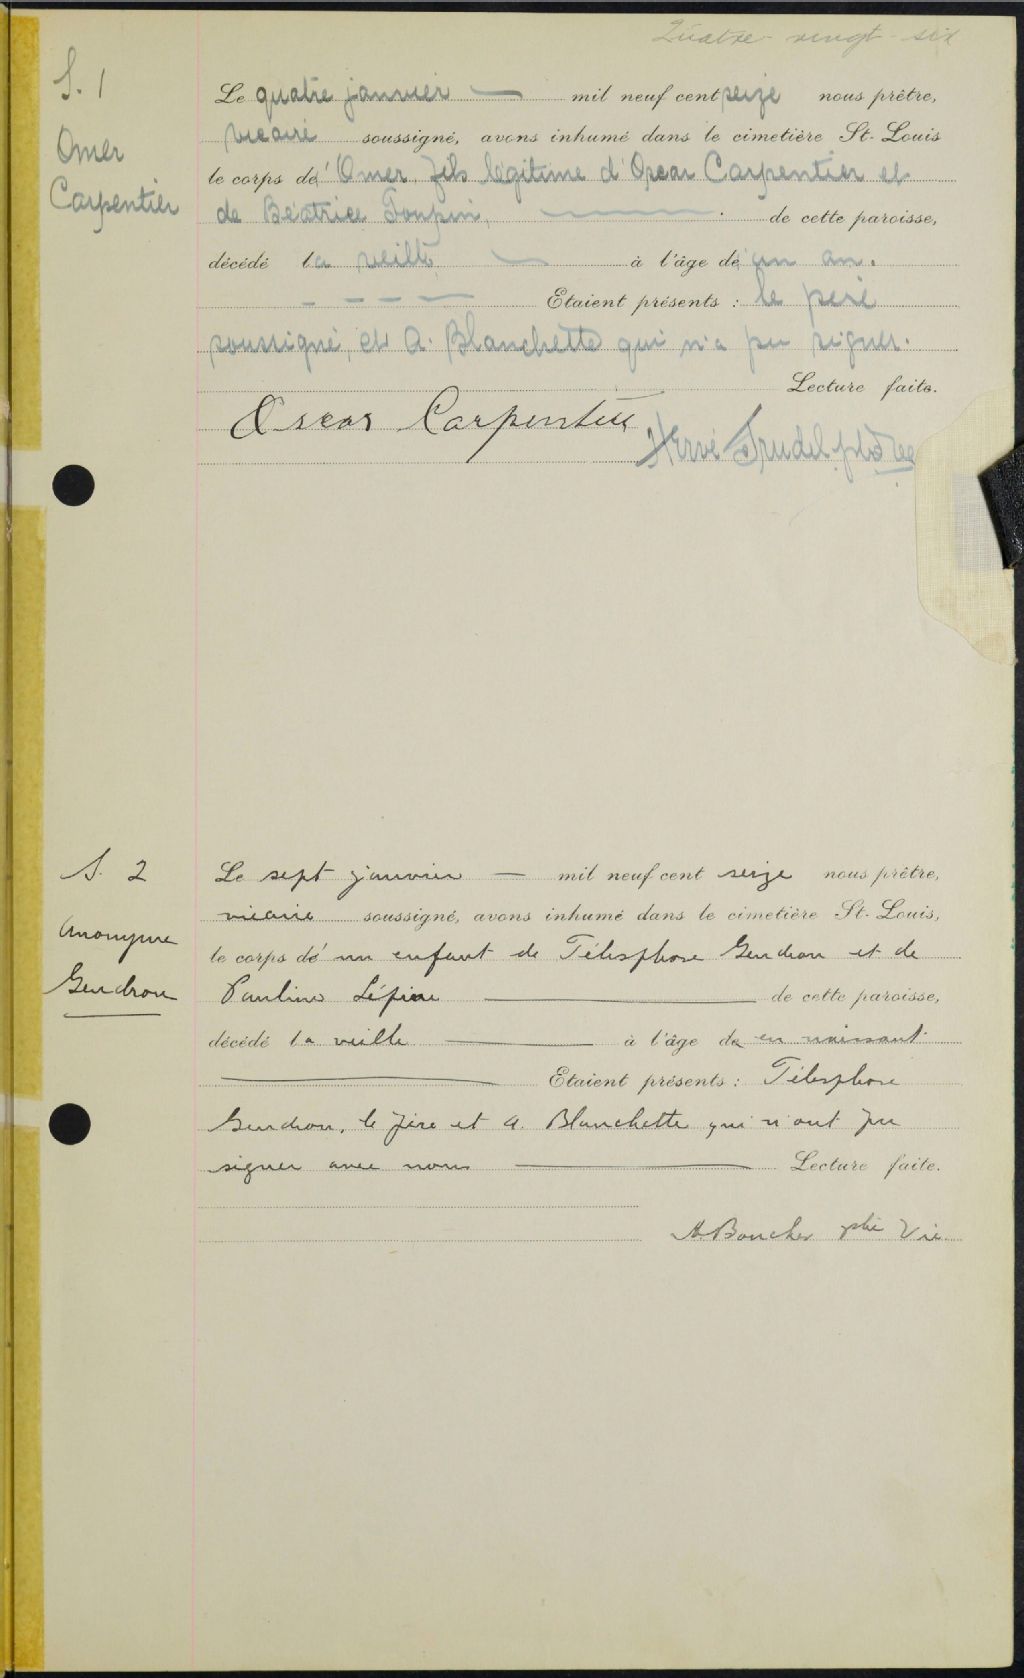 Quatre-vingt-six
S. 1
Omer
Carpentier
Le quatre janvier — mil neuf cent seize nous prêtre,
vicaire soussigné, avons inhumé dans le cimetière St-Louis
le corps de Omer, fils légitime d'Oscar Carpentier et
de Béatrice Toupin, — de cette paroisse,
décédé la veille — à l'âge de un an.
— — — — Etaient présents : le père
soussigné, et A. Blanchette qui n'a pu signer.
Lecture faite.
Oscar Carpentier
Hervé Trudel ptre vic
S. 2
Anonyme
Gendron
Le sept janvier — mil neuf cent seize nous prêtre,
vicaire soussigné, avons inhumé dans le cimetière St-Louis,
le corps de un enfant de Télesphore Gendron et de
Pauline Lépine — de cette paroisse,
décédé la veille — à l'âge de en naissant
— Etaient présents : Télesphore
Gendron, le père et A. Blanchette qui n'ont pu
signer avec nous — Lecture faite.
A Boucher ptre Vic